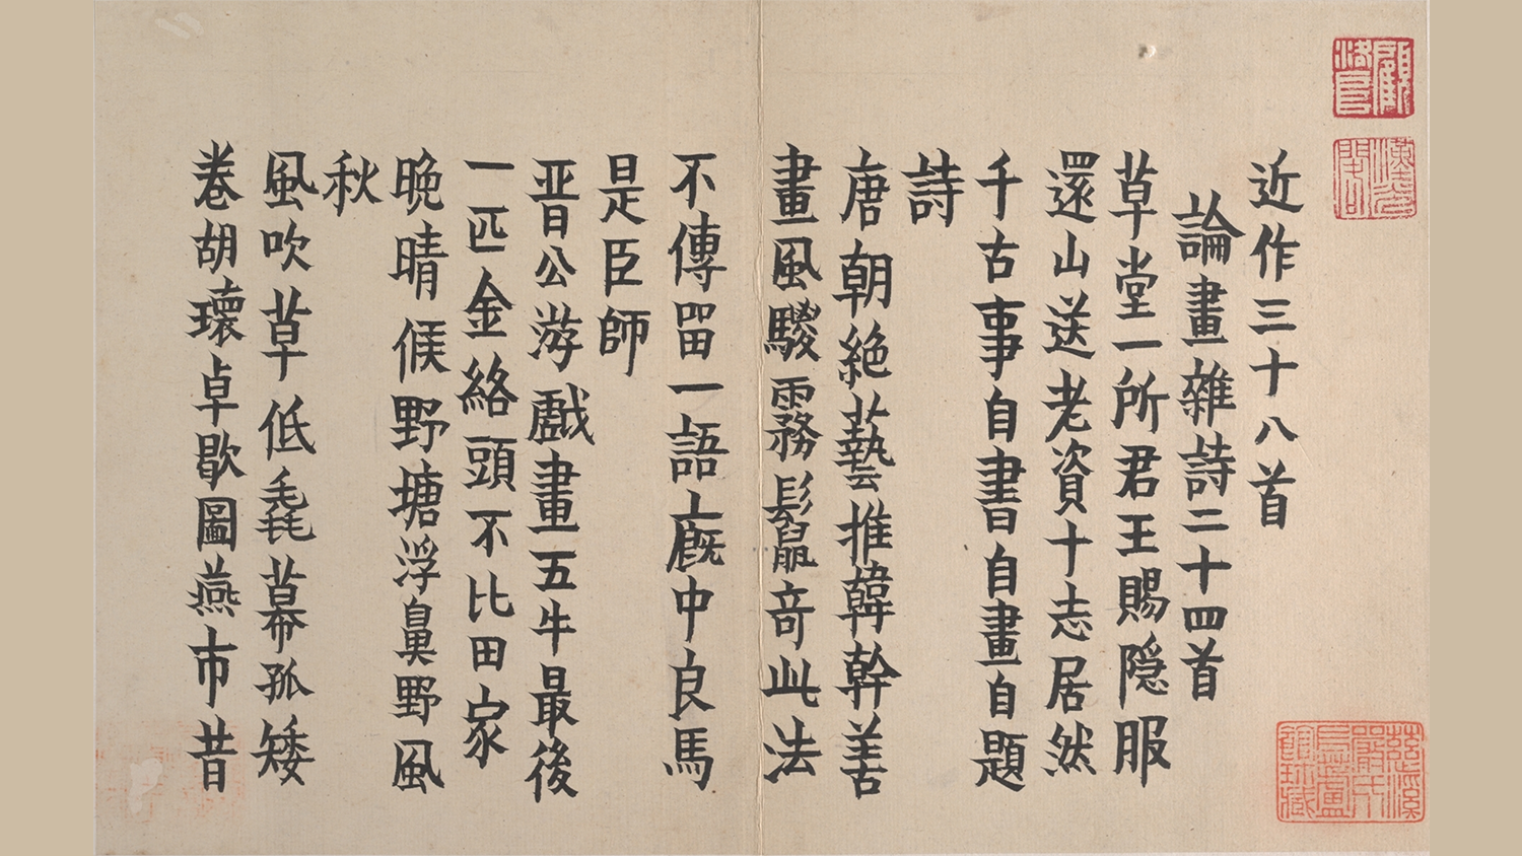 顧洛阜
漢光閣
近作三十八首
論畫雜詩二十四首
草堂一所君王賜隠服
還山送老資十志居然
千古事自書自畫自題
詩
唐朝絶藝推韓幹善
畫風騣霧鬛奇此法
不傳畱一語廄中良馬
是臣師
晋公游戲畫五牛最後
一匹金絡頭不比田家
晚晴候野塘浮鼻野風
秋
風吹草低毳幕孤矮
卷胡瓌卓歇圖燕市昔